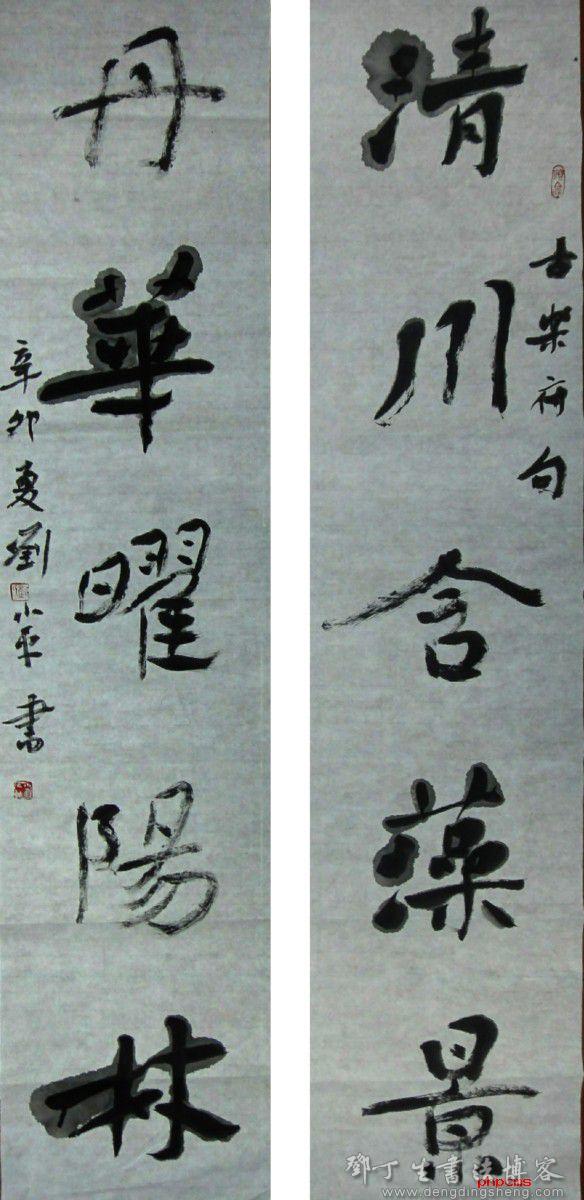 清川含藻景
古樂府句
丹華曜陽林
辛卯夏劉小平書
鄧丁生書法博客
phpcms
www.dengdingsheng.com